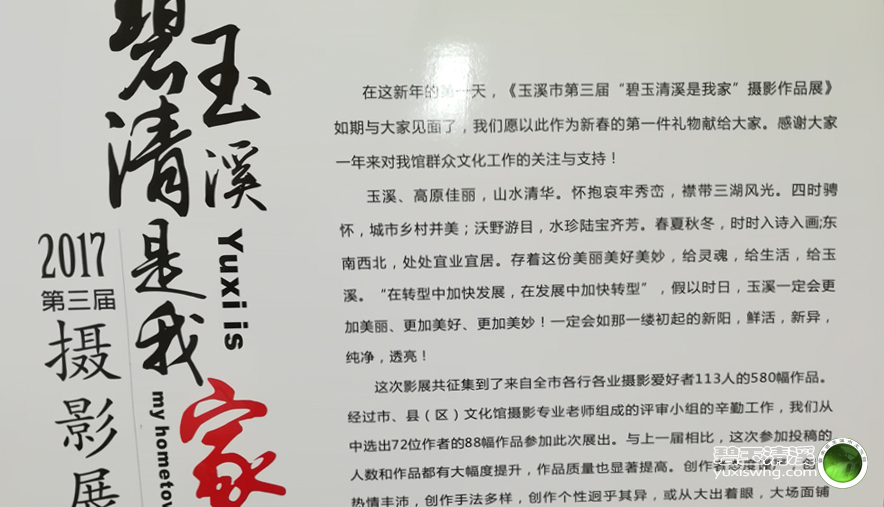 碧玉清溪是我家
Yuxi is
my hometow
2017
第三届
摄影展
在这新年的第一天，《玉溪市第三届“碧玉清溪是我家”摄影作品展》
如期与大家见面了，我们愿以此作为新春的第一件礼物献给大家。感谢大家
一年来对我馆群众文化工作的关注与支持！
玉溪、高原佳丽，山水清华。怀抱哀牢秀峦，襟带三湖风光。四时骋
怀，城市乡村并美；沃野游目，水珍陆宝齐芳。春夏秋冬，时时入诗入画;东
南西北，处处宜业宜居。存着这份美丽美好美妙，给灵魂，给生活，给玉
溪。“在转型中加快发展，在发展中加快转型”，假以时日，玉溪一定会更
加美丽、更加美好、更加美妙！一定会如那一缕初起的新阳，鲜活，新异，
纯净，透亮！
这次影展共征集到了来自全市各行各业摄影爱好者113人的580幅作品。
经过市、县（区）文化馆摄影专业老师组成的评审小组的辛勤工作，我们从
中选出72位作者的88幅作品参加此次展出。与上一届相比，这次参加投稿的
人数和作品都有大幅度提升，作品质量也显著提高。创作者态度
热情丰沛，创作手法多样，创作个性迥乎其异，或从大出着眼，大场面铺
碧玉清溪
yuxiswhg.com